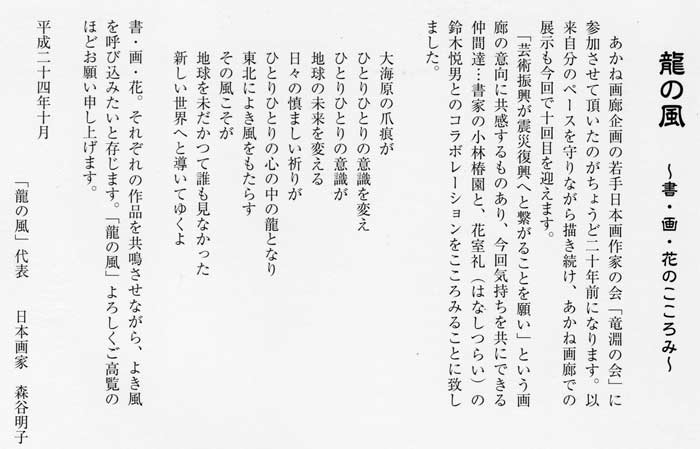 龍の風　〜書・画・花のこころみ〜
あかね画廊企画の若手日本画作家の会「竜淵の会」に
参加させて頂いたのがちょうど二十年前になります。以
来自分のペースを守りながら描き続け、あかね画廊での
展示も今回で十回目を迎えます。
「芸術振興が震災復興へと繋がることを願い」という画
廊の意向に共感するものあり、今回気持ちを共にできる
仲間達…書家の小林椿園と、花室礼（はなしつらい）の
鈴木悦男とのコラボレーションをこころみることに致し
ました。
大海原の爪痕が
ひとりひとりの意識を変え
ひとりひとりの意識が
地球の未来を変える
日々の慎ましい祈りが
ひとりひとりの心の中の龍となり
東北によき風をもたらす
その風こそが
地球を未だかつて誰も見なかった
新しい世界へと導いてゆくよ
書・画・花。それぞれの作品を共鳴させながら、よき風
を呼び込みたいと存じます。「龍の風」よろしくご高覧の
ほどお願い申し上げます。
平成二十四年十月
「龍の風」代表　日本画家　森谷明子